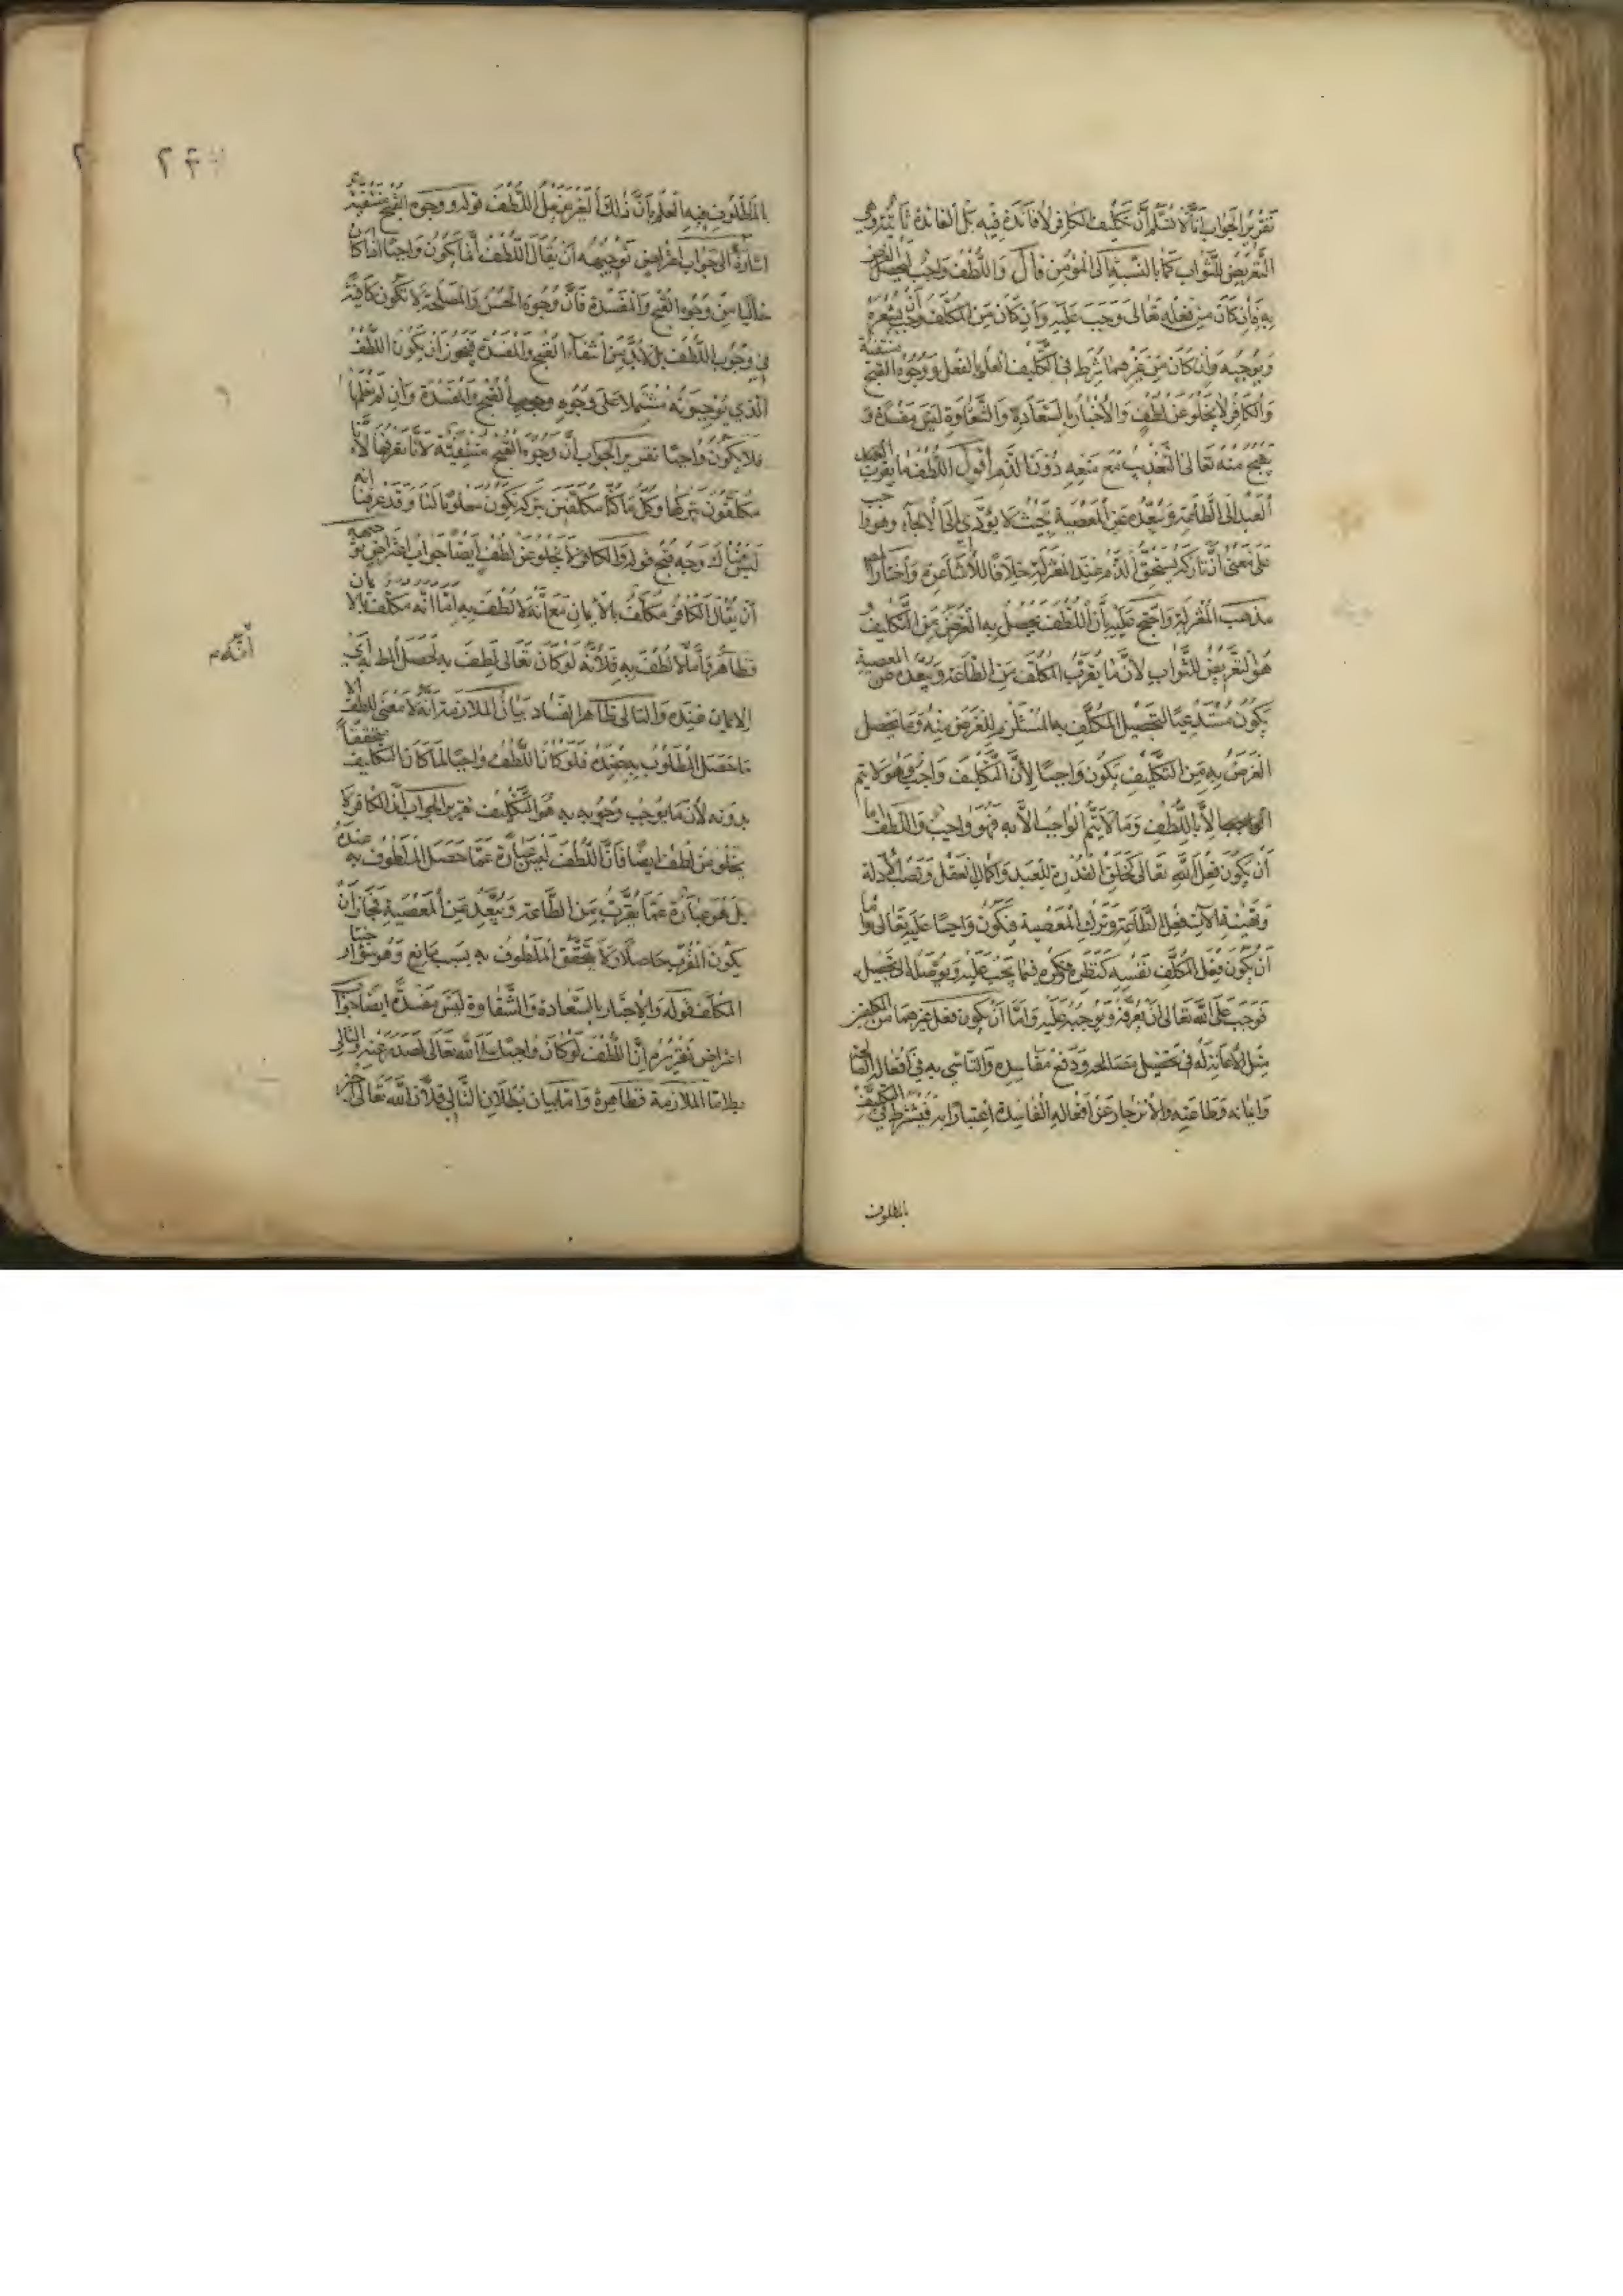 تقرير الجواب أنا لا نسلم أن تكليف الكافر لا فائدة فيه بل الفائدة ثابتة وهي
التعريض للثواب كما بالنسبة الى المؤمن قال واللطف واجب ليحصل الغرض
به فان كان من فعله تعالى وجب عليه وان كان من المكلف وجب أن يشعره
ويوجبه وان كان من غيرهما شرط في التكليف العلم بالفعل ووجوه القبح منتفية
والكافر لا يخلو عن لطف والأخبار بالسعادة والشقاوة ليس مفسدة و
يقبح منه تعالى التعذيب مع منعه دون الذم أقول اللطف ما يقرب
العبد الى الطاعة ويبعده عن المعصية بحيث لا يؤدي الى الالجاء وهو واجب
على معنى أن تاركه يستحق الذم عند المعتزلة خلافا للأشاعرة واختار
مذهب المعتزلة واحتج عليه بأن اللطف يحصل به الغرض من التكليف
هو التعريض للثواب لأن ما يقرب المكلف من الطاعة ويبعده عن المعصية
يكون مستدعيا لتحصيل المكلف به المستلزم للغرض منه وما يحصل
الغرض به من التكليف يكون واجبا لأن التكليف واجب وهو لا يتم
الا باللطف وما لا يتم الواجب الا به فهو واجب واللطف اما
أن يكون فعل الله تعالى كخلق القدرة للعبد واكمال العقل ونصب الأدلة
وتهيئة الآت فعل الطاعة وترك المعصية فيكون واجبا عليه تعالى واما
أن يكون فعل المكلف نفسه كنظره وفكره فيما يجب عليه ويوصله الى تحصيله
فوجب على الله تعالى أن يعرفه ويوجبه عليه واما أن يكون فعل غيرهما من المكلفين
مثل الاعانة له في تحصيل مصالحه ودفع مفاسده والتأسي به في أفعاله
وايمانه وطاعته والانزجار عن أفعاله الفاسدة اعتبارا به فيشترط في التكليف
بالملطوف
بالملطوف فيه العلم بأن ذلك الغير يفعل اللطف قوله ووجوه القبح منتفية
اشارة الى جواب اعتراض توجيهه أن يقال اللطف انما يكون واجبا اذا كان
خاليا من وجوه القبح والمفسدة فان وجوه الحسن والمصلحة لا تكون كافية
في وجوب اللطف بل لابد من انتفاء القبح والمفسدة فيجوز أن يكون اللطف
الذي يوجبونه مشتملا على وجوه القبح والمفسدة وان لم نعلمها
فلا يكون واجبا تقرير الجواب أن وجوه القبح منتفية لأنا نعرفها لأنا
مكلفون بتركها وكل ما كنا مكلفين بتركه يكون معلوما لنا وقد عرفنا انه
ليس هناك وجه قبح قوله والكافر لا يخلو عن لطف أيضا جواب اعتراض توجيهه
أن يقال الكافر مكلف بالايمان مع أنه لا لطف به اما انه مكلف بالايمان
فظاهر وأما لا لطف به فلأنه لو كان تعالى لطف به لحصل الملطوف
الايمان عنده والتالي ظاهر الفساد بيان الملازمة أنه لا معنى للطف الا
ما حصل المطلوب عنده فلو كان اللطف واجبا لما كان التكليف متحققا
بدونه لأن ما يوجب وجوبه هو التكليف تقرير الجواب أن الكافر لا
يخلو من لطف أيضا فان اللطف ليس عبارة عما حصل الملطوف به عنده
بل هو عبارة عما يقرب من الطاعة ويبعد من المعصية فجاز أن
يكون المقرب حاصلا ولا يتحقق الملطوف به بسبب مانع وهو سوء اختيار
المكلف قوله والاخبار بالسعادة والشقاوة ليس مفسدة أيضا جواب
اعتراض تقريره أن اللطف لو كان واجبا على الله تعالى لصدر عنه والتالي
باطل اما الملازمة فظاهرة واما بيان بطلان التالي فلأن الله تعالى أخبر